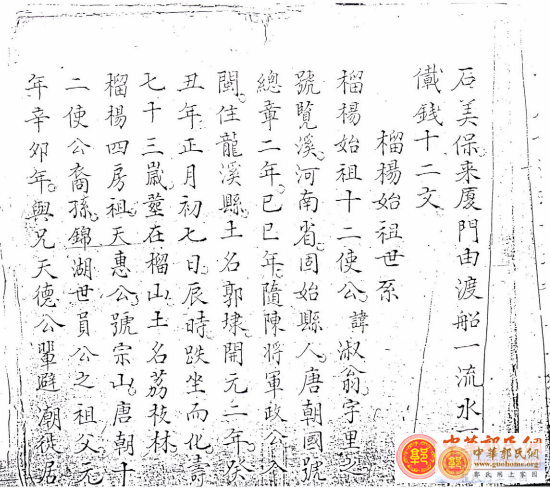 石美保來厦門由渡船一流水
儎錢十二文
榴楊始祖世系
榴楊始祖十二使公諱淑翁字里之
號覽溪河南省固始縣人唐朝國號
總章二年己巳年隨陳將軍政公入
閩住龍溪縣土名郭埭開元二年癸
丑年正月初七日辰時跌坐而化壽
七十三歲塟在榴山土名荔枝林
榴楊四房祖天惠公號宗山唐朝十
二使公裔孫錦湖世員公之祖父元
年辛卯年與兄天德公輩避潮徙居
中華郭氏網
www.guohome.org
郭氏網上家園